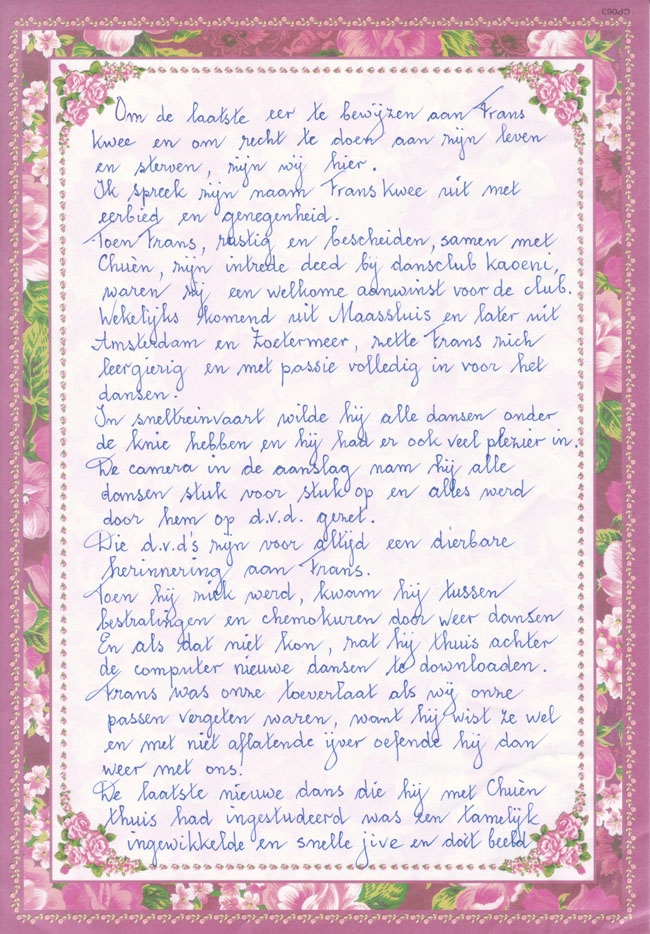 CP063
Om de laatste eer te bewijzen aan Frans
Kwee en om recht te doen aan zijn leven
en sterven, zijn wij hier.
Ik spreek zijn naam Frans Kwee uit met
eerbied en genegenheid.
Toen Frans, rustig en bescheiden, samen met
Chuèn, zijn intrede deed bij dansclub Kaoeni,
waren zij een welkome aanwinst voor de club.
Wekelijks komend uit Maassluis en later uit
Amsterdam en Zoetermeer, zette Frans zich
leergierig en met passie volledig in voor het
dansen.
In sneltreinvaart wilde hij alle dansen onder
de knie hebben en hij had er ook veel plezier in.
De camera in de aanslag nam hij alle
dansen stuk voor stuk op en alles werd
door hem op d.v.d. gezet.
Die d.v.d's zijn voor altijd een dierbare
herinnering aan Frans.
Toen hij ziek werd, kwam hij tussen
bestralingen en chemokuren door weer dansen
En als dat niet kon, zat hij thuis achter
de computer nieuwe dansen te downloaden.
Frans was onze toeverlaat als wij onze
passen vergeten waren, want hij wist ze wel
en met niet aflatende ijver oefende hij dan
weer met ons.
De laatste nieuwe dans die hij met Chuèn
thuis had ingestudeerd was een tamelijk
ingewikkelde en snelle jive en dat beeld